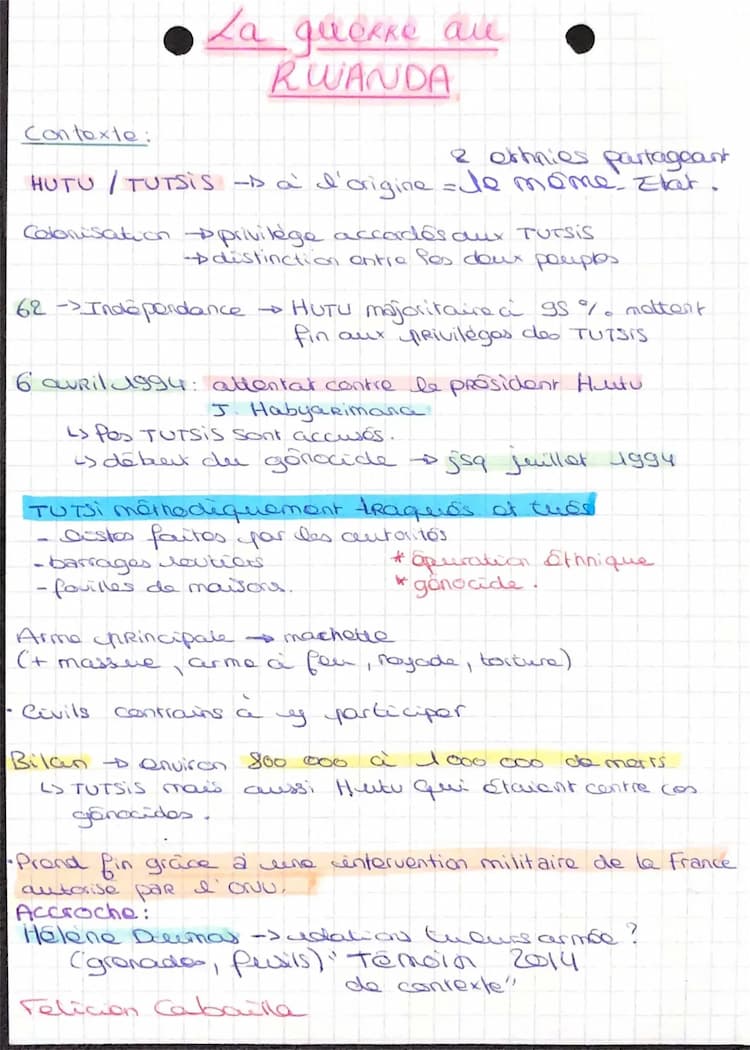 La guerre au
RWANDA
Contexte:
2 ethnies partageant
HUTU / TUTSIS → à l'origine = le même Etat.
Colonisation → privilège accordés aux TUTSIS
→ distinction entre les deux peuples
62 → Indépendance → HUTU majoritaire à 95 % mettent
fin aux privilèges des TUTSIS
6 avril 1994: attentat contre le président Hutu
J. Habyarimana
↳ les TUTSIS sont accusés.
↳ début du génocide → jsq juillet 1994
TUTSI méthodiquement traqués et tués
- listes faites par les autorités
- barrages routiers * épuration Ethnique
- fouilles de maisons. * génocide.
Arme principale → machette
(+ massue, arme à feu, noyade, torture)
· Civils contrains à y participer
Bilan → environ 800 000 à 1 000 000 de morts
↳ TUTSIS mais aussi Hutu qui étaient contre ces
génocides.
· Prend fin grâce à une intervention militaire de la France
autorisé par l'ONU.
Accroche:
Hélène Dumas → relations tueurs armée?
(grenades, fusils) "Témoin 2014
de contexte"
Felicien Cabailla